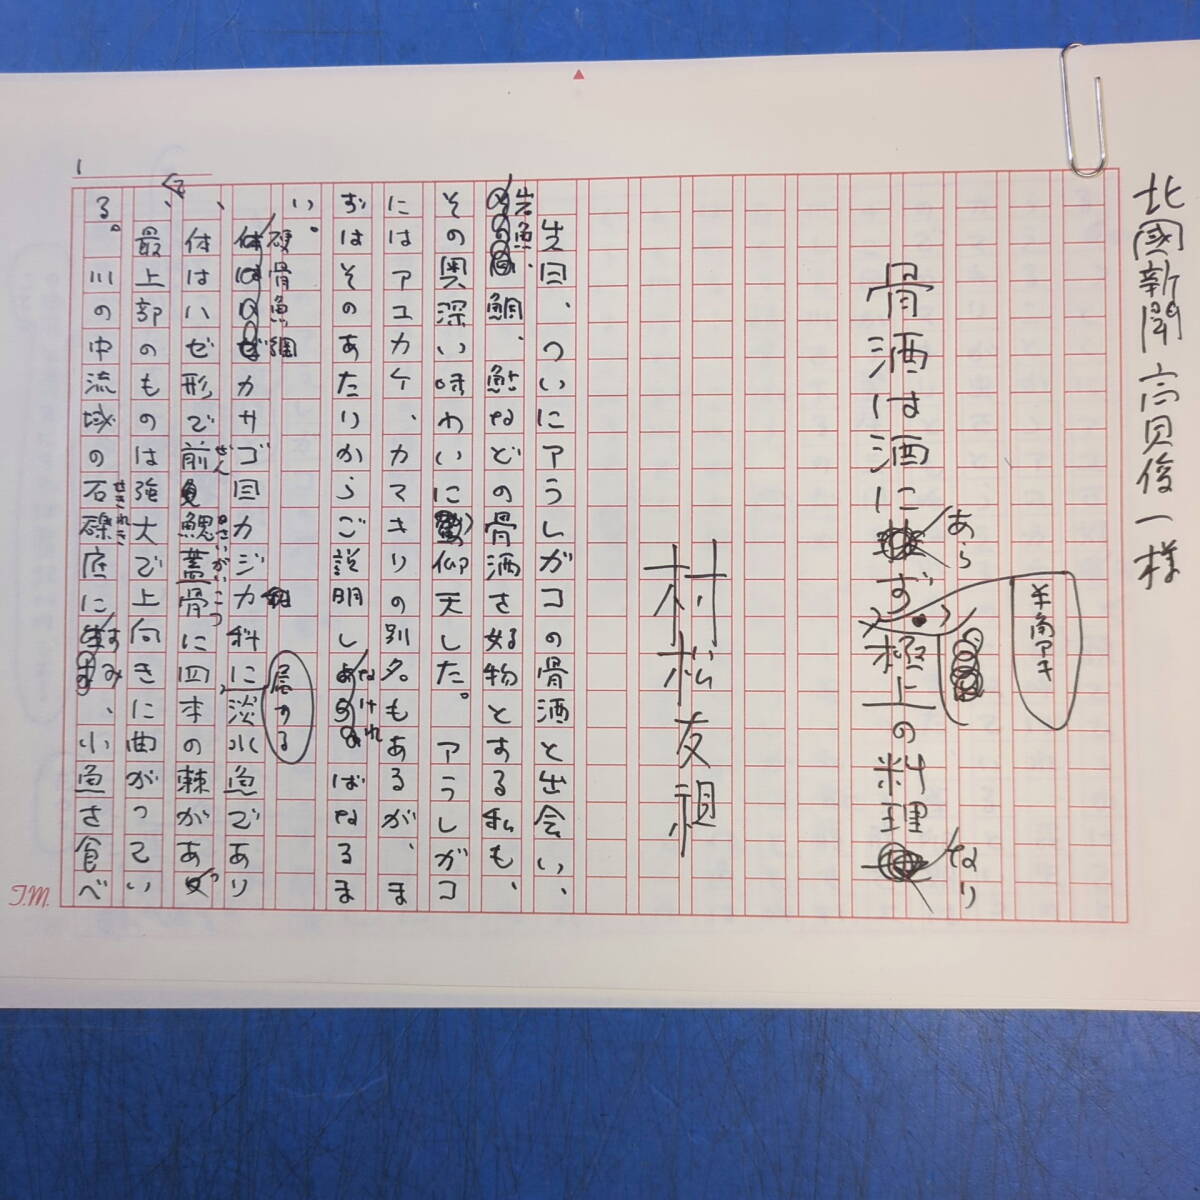 北國新聞 高見俊一様
骨酒は酒にあらず 極上の料理なり
半角アキ
村松友視
先日、ついにアラレガコの骨酒と出会い、
岩魚、鯛、鮎などの骨酒を好物とする私も、
その奥深い味わいに仰天した。アラレガコ
にはアユカケ、カマキリの別名もあるが、ま
ずはそのあたりからご説明しなければなるま
い。
硬骨魚綱カサゴ目カジカ科に属する淡水魚であり
、体はハゼ形で前鰓蓋骨に四本の棘があって
ぜんさいがいこつ
、最上部のものは強大で上向きに曲がってい
る。川の中流域の石礫底にすみ、小魚を食べ
せきれき
1
T.M.